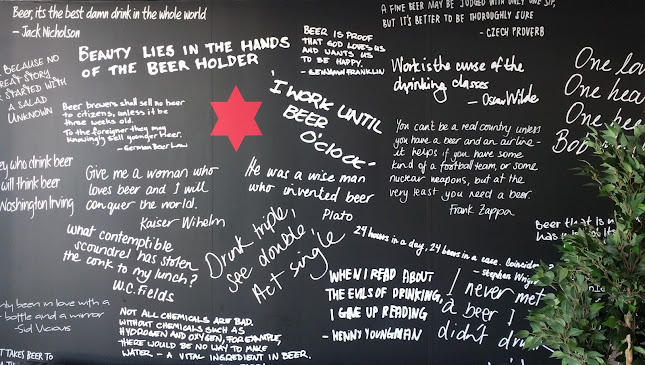 Beer, it's the best damn drink in the whole world
- Jack Nicholson
BEAUTY LIES IN THE HANDS
OF THE BEER HOLDER
BEER IS PROOF
THAT GOD LOVES US
AND WANTS US
TO BE HAPPY.
- BENJAMIN FRANKLIN
A FINE BEER MAY BE JUDGED WITH ONLY ONE SIP,
BUT IT'S BETTER TO BE THOROUGHLY SURE
- CZECH PROVERB
BECAUSE NO
GREAT STORY
STARTED WITH
A SALAD
UNKNOWN
Beer brewers shall sell no beer
to citizens, unless it be
three weeks old.
To the foreigner they may
knowingly sell younger beer.
- German Beer Law
'I WORK UNTIL
BEER
O'CLOCK'
Work is the curse of the
drinking classes
- Oscar Wilde
One lo
One hea
One bee
Bob
You can't be a real country unless
you have a beer and an airline -
it helps if you have some
kind of a football team, or some
nuclear weapons, but at the
very least you need a beer.
Frank Zappa
ey who drink beer
will think beer
Washington Irving
Give me a woman who
loves beer and I will
conquer the world.
Kaiser Wilhelm
He was a wise man
who invented beer
Plato
what contemptible
scoundrel has stolen
the cork to my lunch?
W.C. Fields
Drink triple,
see double,
Act single
24 hours in a day, 24 beers in a case.
- Stephen Wright
Beer that is n
WHEN I READ ABOUT
THE EVILS OF DRINKING,
I GAVE UP READING
- HENNY YOUNGMAN
I never met
a beer I
didn't
only been in love with a
bottle and a mirror
- Sid Vicious
NOT ALL CHEMICALS ARE BAD
WITHOUT CHEMICALS SUCH AS
HYDROGEN AND OXYGEN, FOR EXAMPLE,
THERE WOULD BE NO WAY TO MAKE
WATER - A VITAL INGREDIENT IN BEER.
T TAKES BEER TO